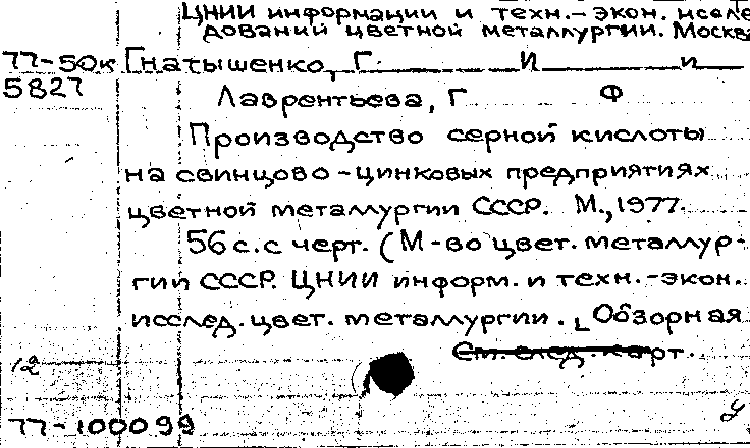 ЦНИИ информации и техн.-экон. иссле
дований цветной металлургии. Москва
77-50к Гнатышенко, Г И и
5827 Лаврентьева, Г Ф
Производство серной кислоты
на свинцово-цинковых предприятиях
цветной металлургии СССР. М., 1977.
56 с. с черт. (М-во цвет. металлур-
гии СССР. ЦНИИ информ. и техн.-экон.
исслед. цвет. металлургии. Обзорная
См. след. карт.
12
77-100099
у